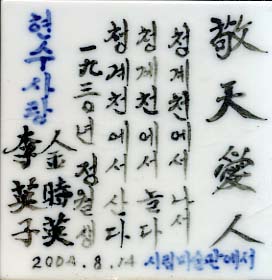 敬天愛人
청계천에서 나서
청계천에서 놀다
청계천에서 산다
一九三0년 정월생
金時英
李英子
현수사랑
2004.8.14 시립미술관에서